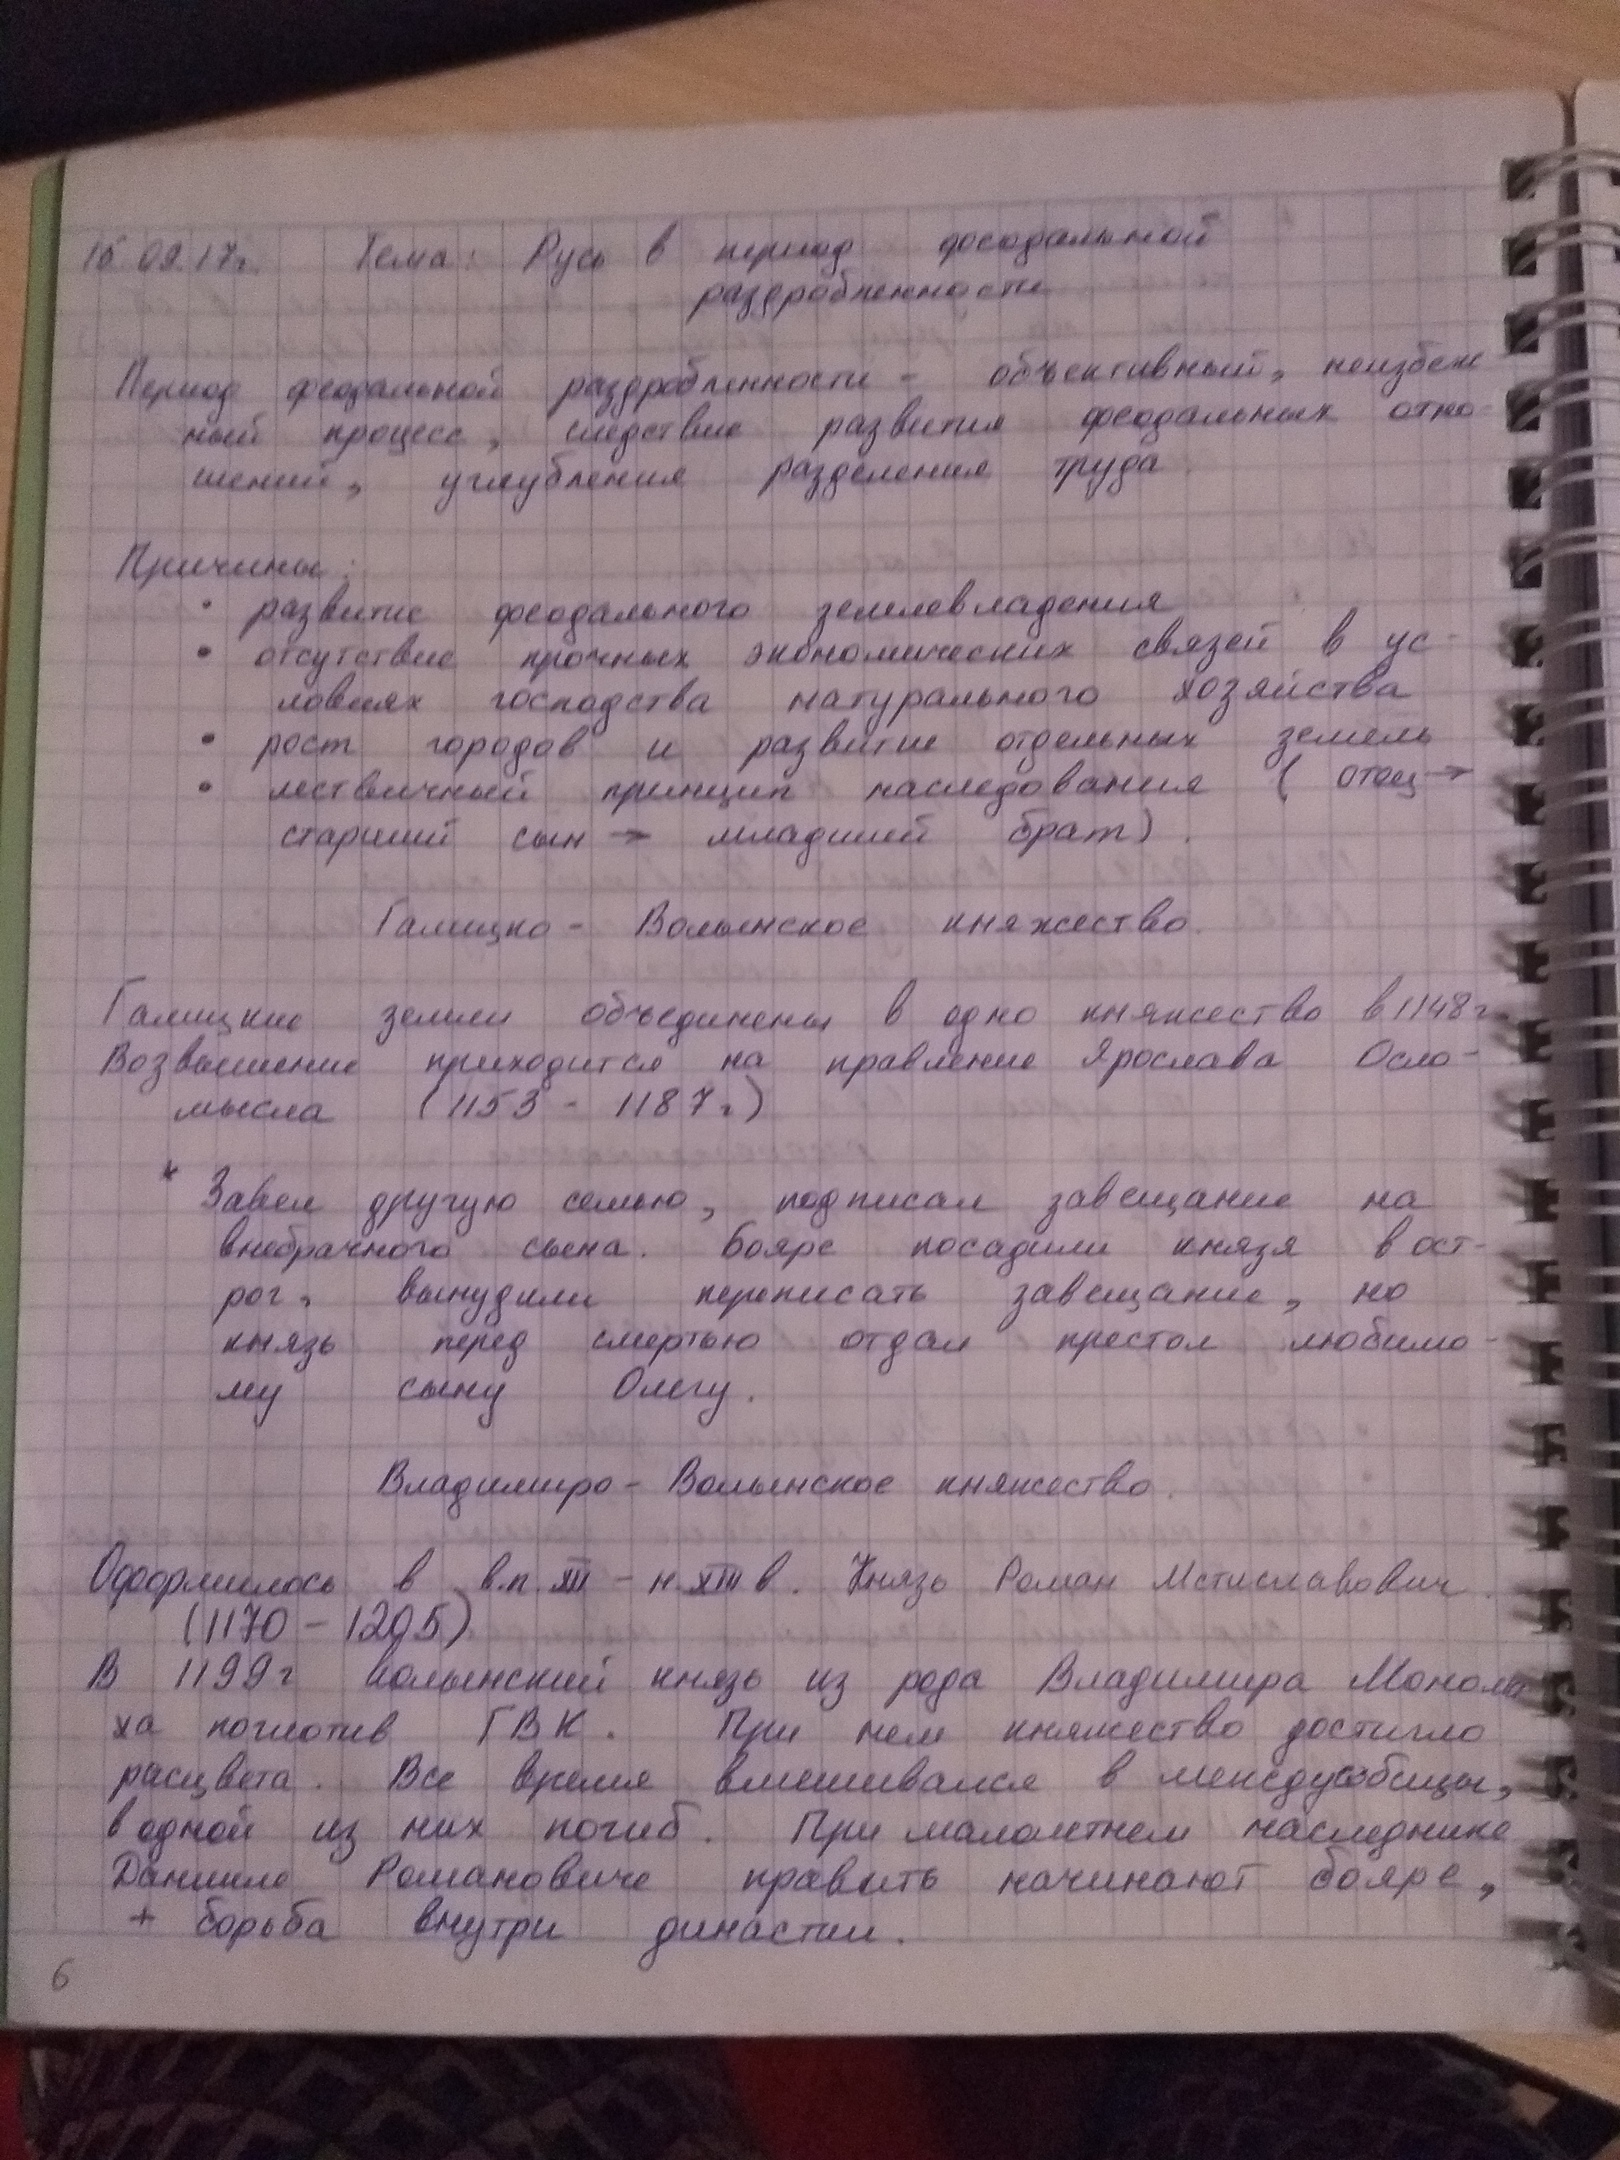 16.09.17г. Тема: Русь в период феодальной
раздробленности
Период феодальной раздробленности - объективный, неизбеж
ный процесс, следствие развития феодальных отно-
шений, углубления разделения труда.
Причины:
• развитие феодального землевладения
• отсутствие прочных экономических связей в ус-
ловиях господства натурального хозяйства
• рост городов и развитие отдельных земель
• лествичный принцип наследования (отец→
старший сын → младший брат).
Галицко - Волынское княжество.
Галицкие земли объединены в одно княжество в 1148г
Возвышение приходится на правление Ярослава Осло-
мысла (1153 - 1187г)
* Завел другую семью, подписал завещание на
внебрачного сына. Бояре посадили князя в ост-
рог, вынудили переписать завещание, но
князь перед смертью отдал престол любимо-
му сыну Олегу.
Владимиро - Волынское княжество.
Оформилось в в.п. XII - н. XIII в. Князь Роман Мстиславович.
(1170 - 1205)
В 1199г волынский князь из рода Владимира Монома
ха поглотив ГВК. При нем княжество достигло
расцвета. Все время вмешивался в междуусобицы,
в одной из них погиб. При малолетнем наследнике
Данииле Романовиче править начинают бояре,
+ борьба внутри династии.
6